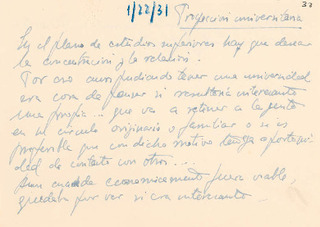 1/22/31 Proyección universitaria 32
En el plano de estudios superiores hay que desear
la concentración y lo relativo.
Por eso aun pudiendo tener una universidad
era cosa de pensar si resultaría interesante
una propia... que va a retener a la gente
en un círculo originario o familiar o si es
preferible que con dicho motivo tenga oportuni-
dad de contacto con otros...
Aun cuando economicamente fuera viable,
quedaba por ver si era interesante.